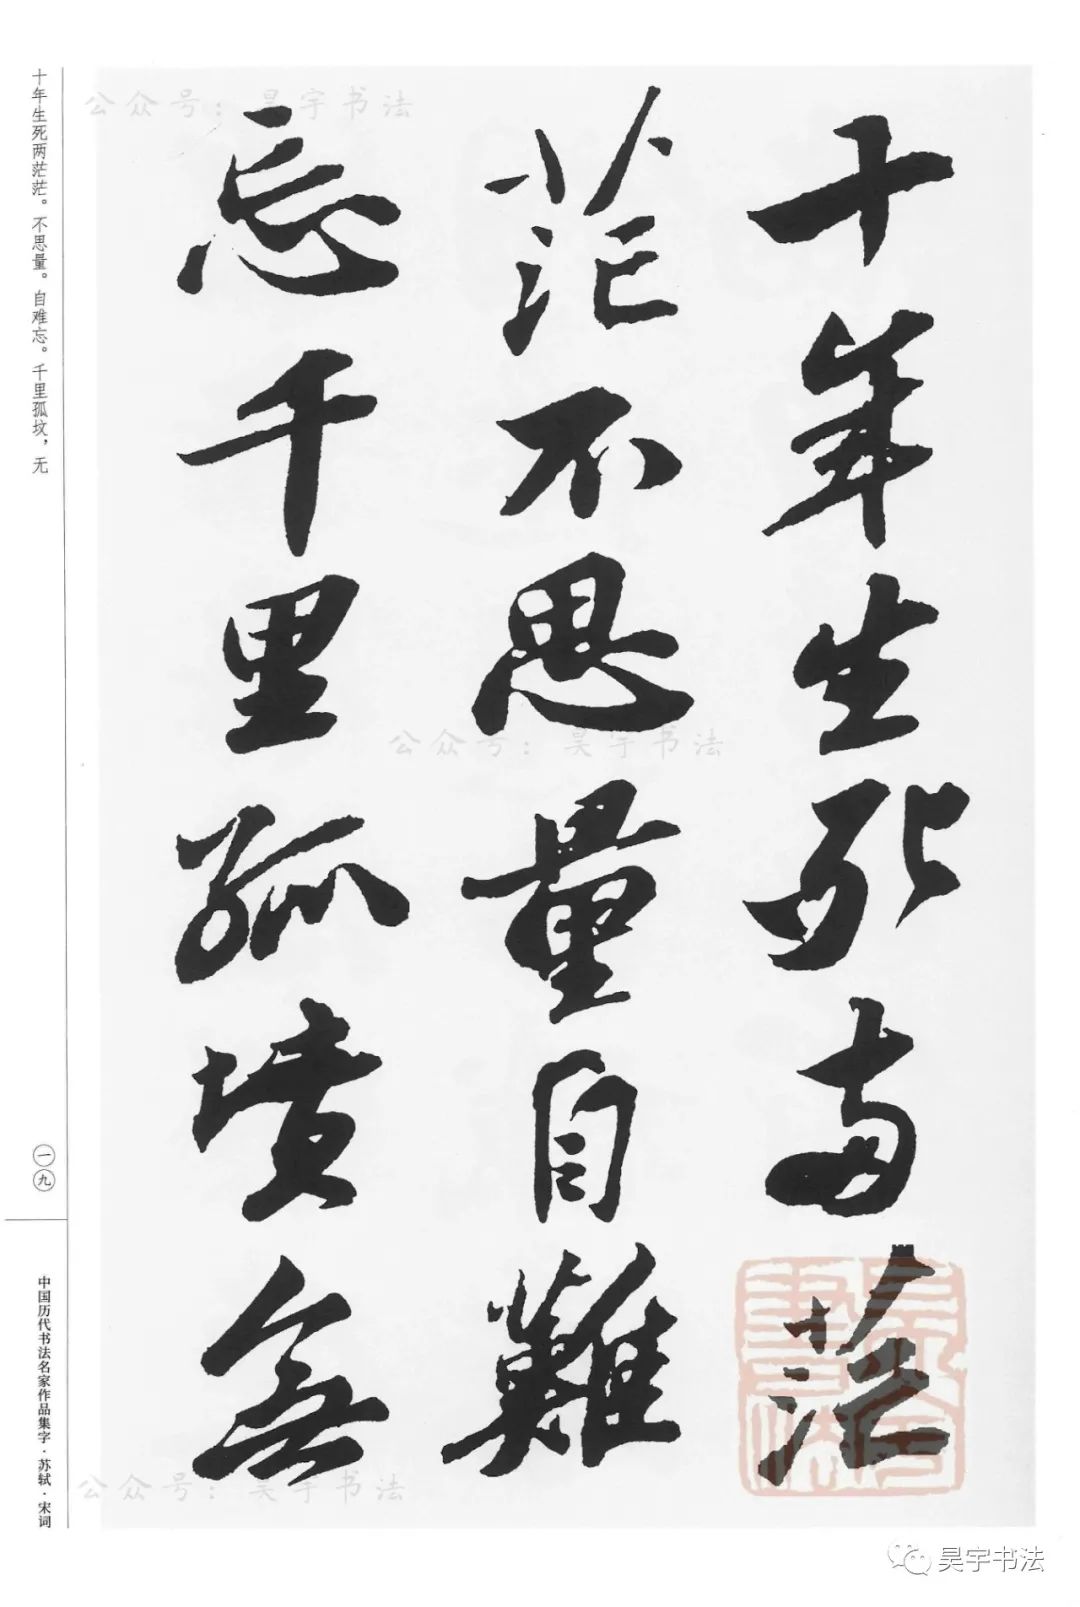 十年生死两茫
茫不思量自難
忘千里孤墳無
十年生死两茫茫。不思量。自难忘。千里孤坟，无
一九
中国历代书法名家作品集字·苏轼·宋词
公众号：昊宇书法
公众号：昊宇书法
公众号：昊宇书法
昊宇书法